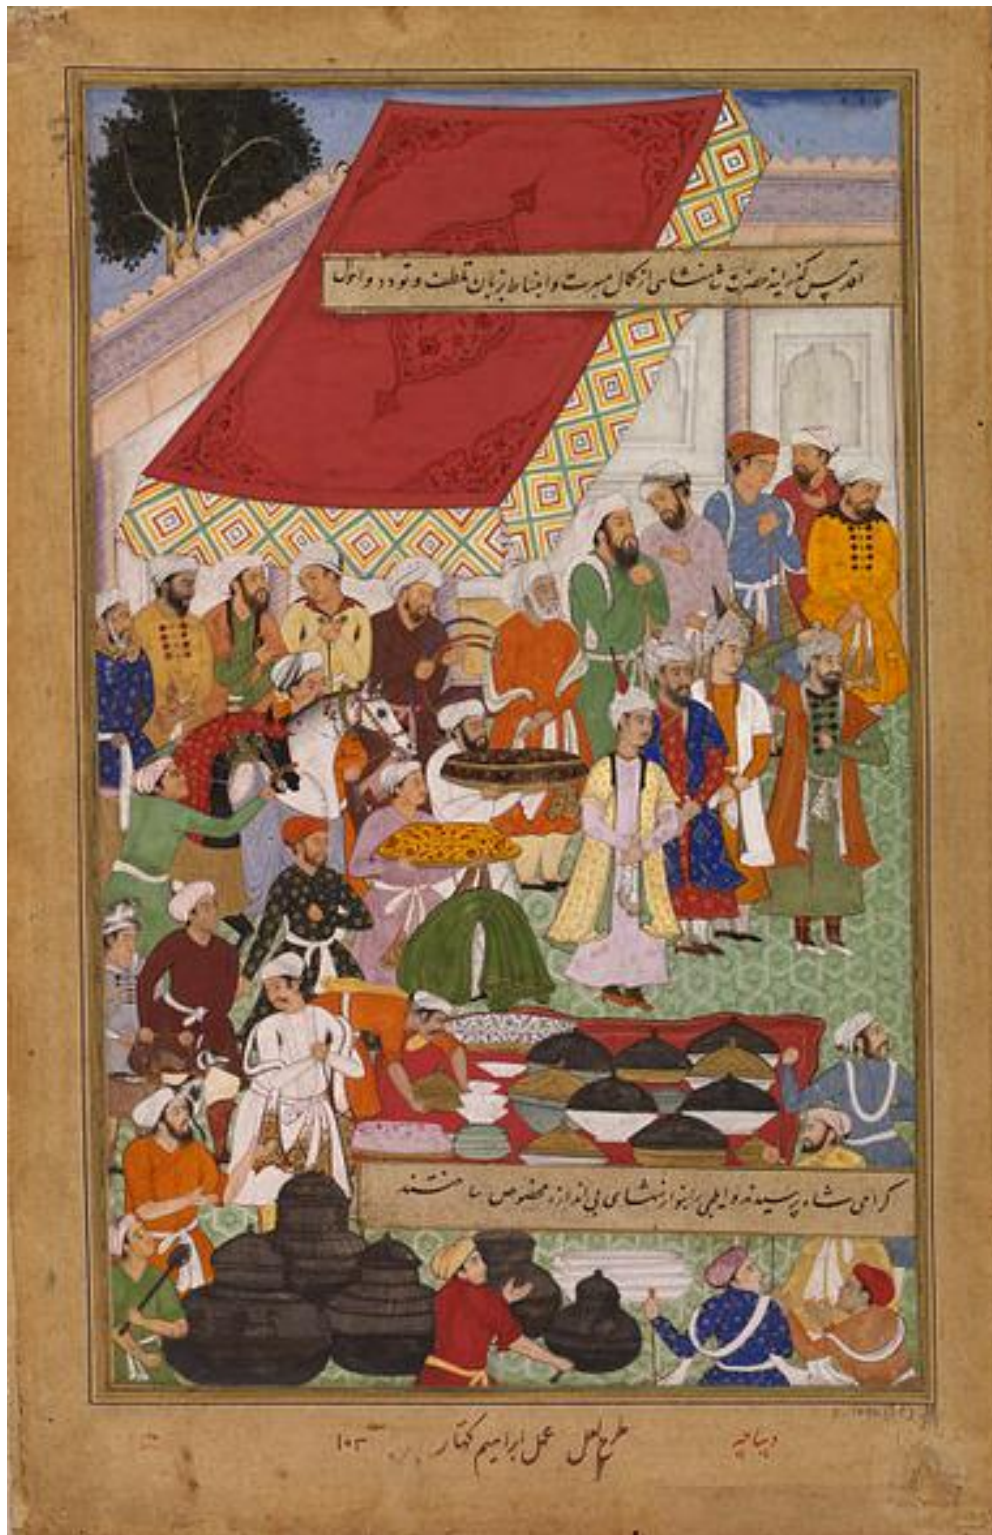 اقدس گذرانید حضرت شاهنشاهی از کمال مسرت و انبساط بزبان تلطف و تودد و احوال
گرامی شاه پرسیدند و ایلچی را بنوازشهای بی اندازه مخصوص ساختند
دیباچه طرح لعل عمل ابراهیم کهار ۱۰۳